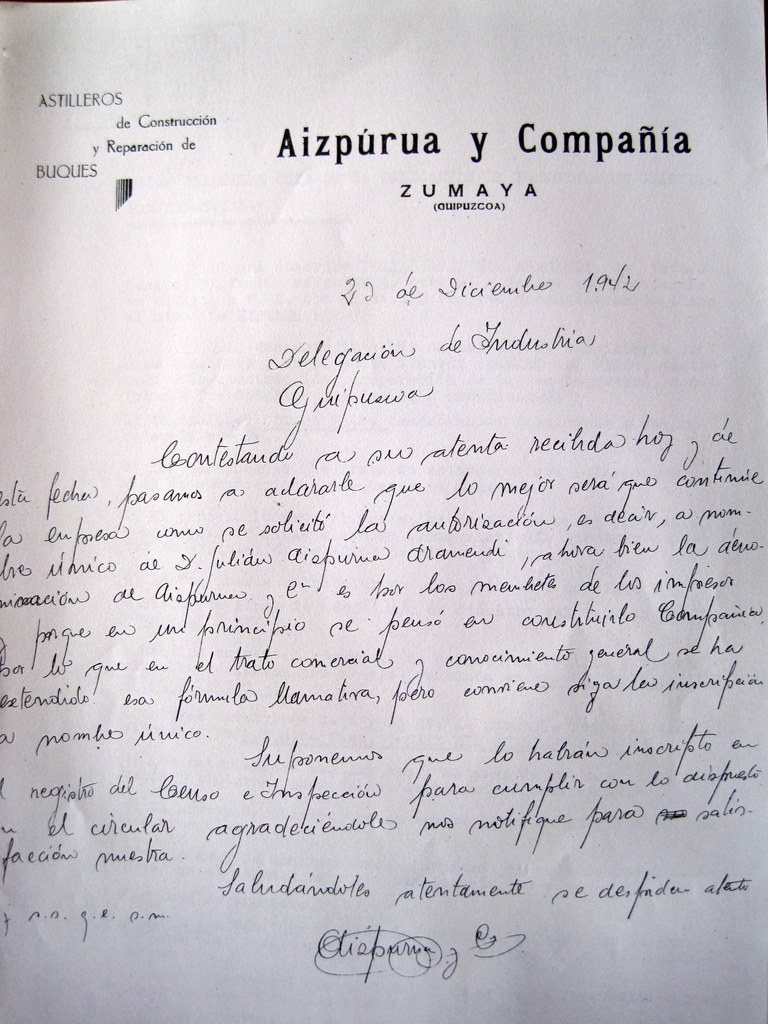 ASTILLEROS
de Construcción
y Reparación de
BUQUES
Aizpúrua y Compañía
ZUMAYA
(GUIPUZCOA)
de Diciembre 1942
Delegación de Industria
Guipuscoa
Contestando a su atenta recibida hoy y de
esta fecha, pasamos a aclararle que lo mejor será que continúe
la empresa como se solicitó la autorización, es decir, a nom-
bre único de D. Julián Aispurua Aramendi, ahora bien la deno-
minación de Aispurua y Cia es por los membetes de los impresos
y porque en un principio se pensó en constituirlo Compañía,
por lo que en el trato comercial y conocimiento general se ha
extendido esa fórmula llamativa, pero conviene siga la inscripción
a nombre único.
Suponemos que lo habrán inscripto en
el registro del Censo e Inspección para cumplir con lo dispuesto
en el circular agradeciéndoles nos notifique para satis-
facción nuestra.
Saludándoles atentamente se despiden atento
y s.s. q.e. s.m.
Aispurua y Cia